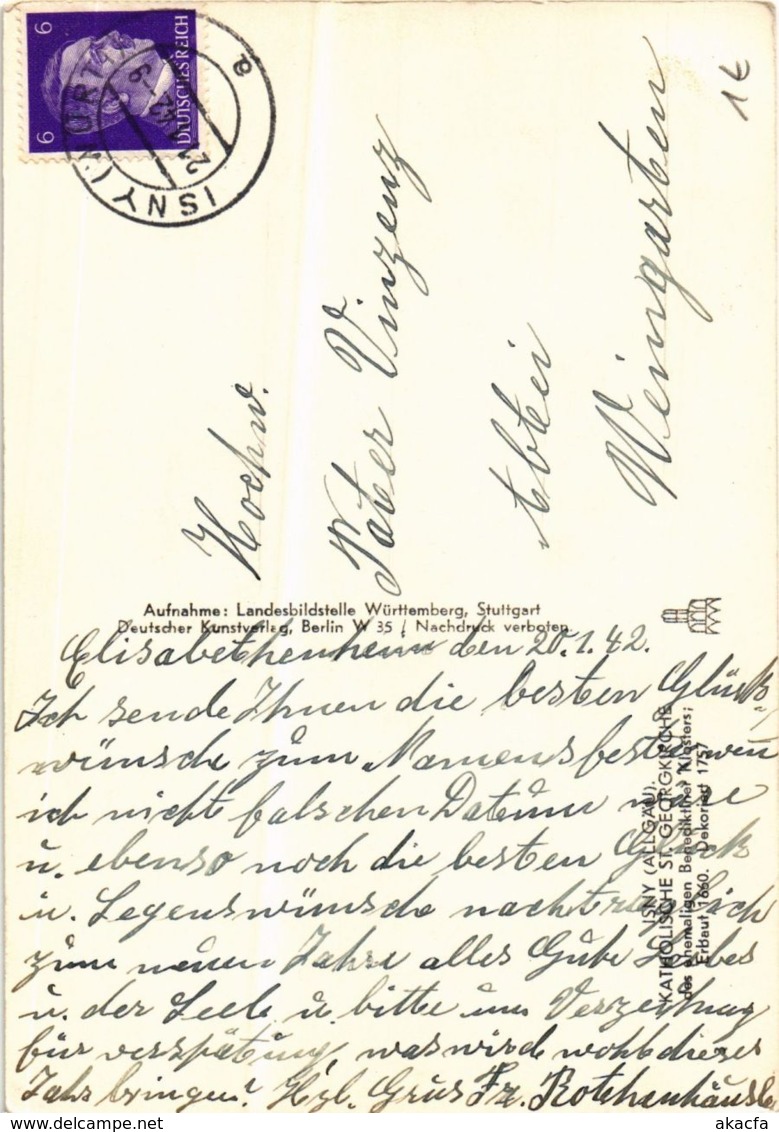 6 6
DEUTSCHES REICH
ISNY (WÜRTT)
21.1.42
a
1€
Hochw.
Pater Vinzenz
Abtei
Weingarten
Aufnahme: Landesbildstelle Württemberg, Stuttgart
Deutscher Kunstverlag, Berlin W 35 / Nachdruck verboten
ISNY (ALLGÄU).
KATHOLISCHE ST. GEORGKIRCHE
des ehemaligen Benediktiner Klosters;
Erbaut 1660. Dekoriert 1757
Elisabethenheim den 20.1.42.
Ich sende Ihnen die besten Glück-
wünsche zum Namensfeste, wen
ich nicht falschen Datum
u. ebenso noch die besten Glück
u. Segenswünsche nachträglich
zum neuen Jahre alles Gute Leibes
u. der Seele u. bitte um Verzeihung
für verspätung, was wird wohl dieses
Jahr bringen? Hzl. Grus Fz. Rothenhäusle
akacfa